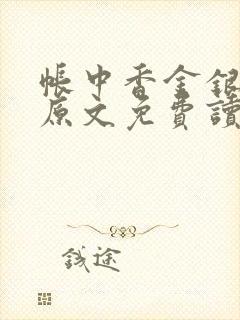 帳中香金銀
原文免費讀
錢途